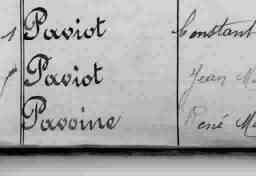 Paviot Constant
Paviot Jean M
Pavoine René Ma